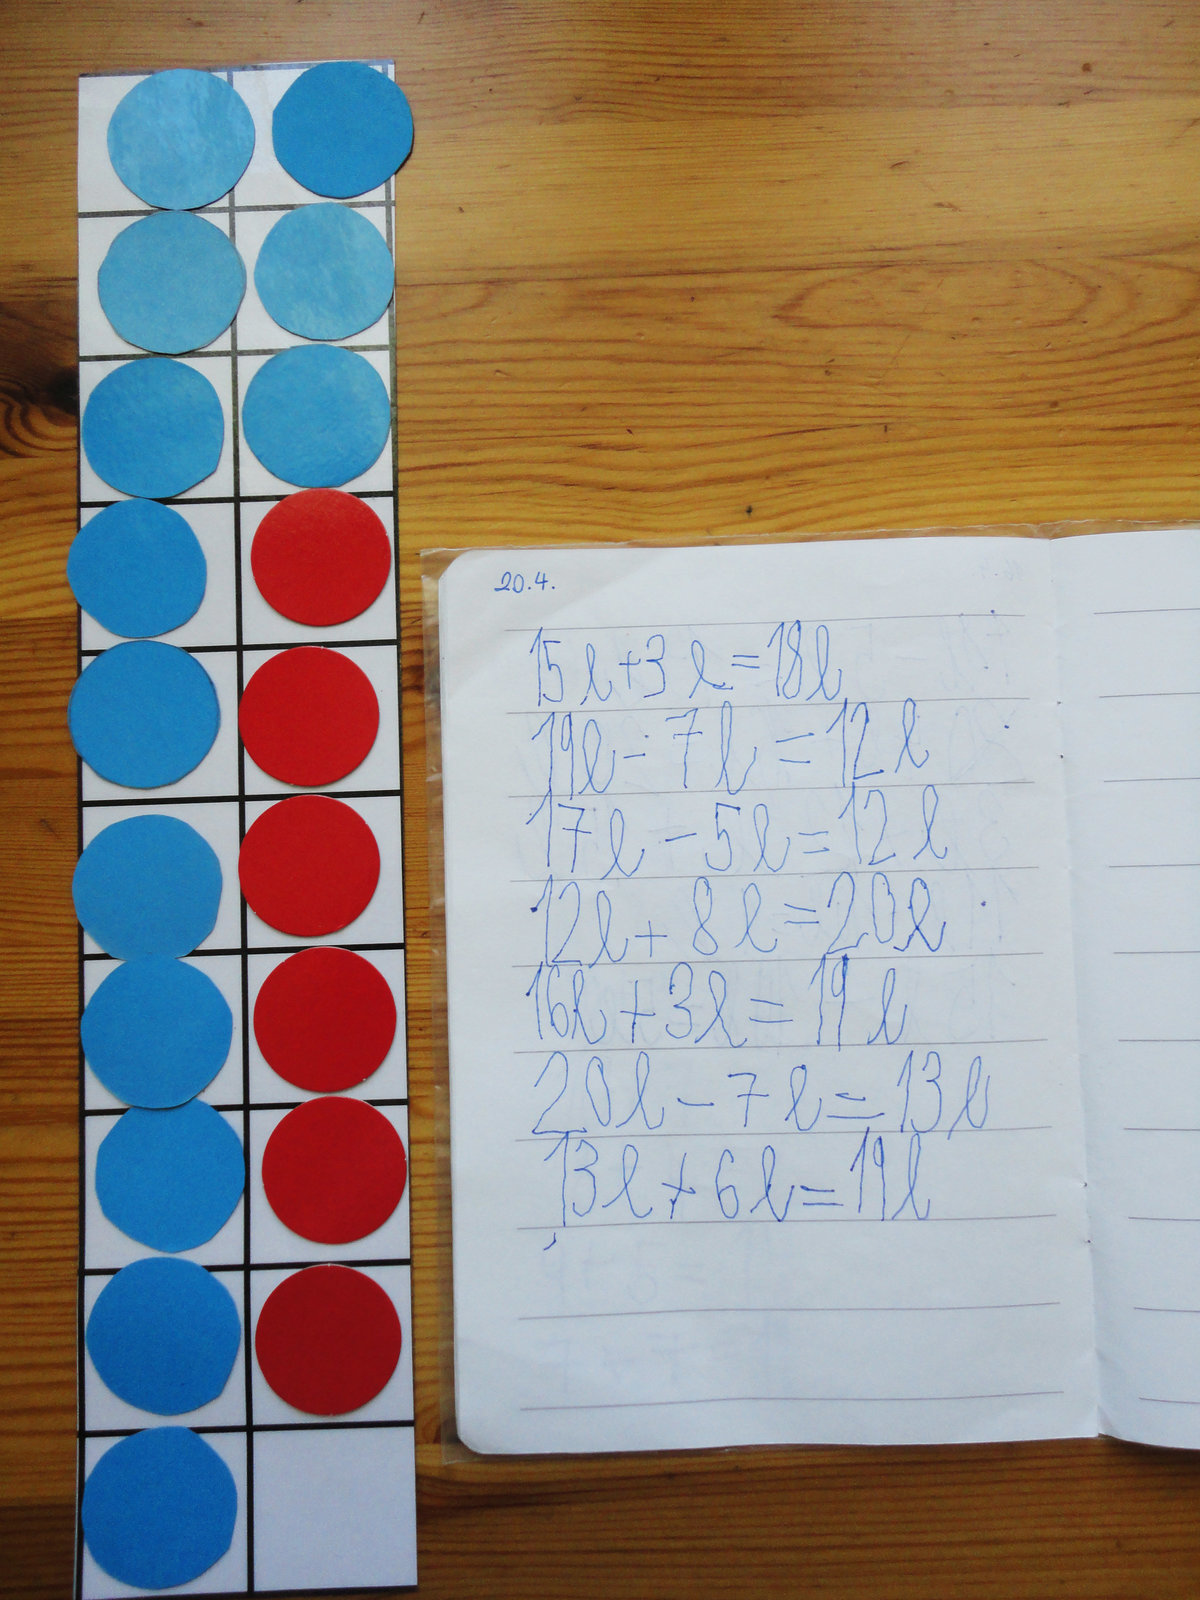 20.4.
15l+3l=18l
19l-7l=12l
17l-5l=12l
12l+8l=20l
16l+3l=19l
20l-7l=13l
13l+6l=19l